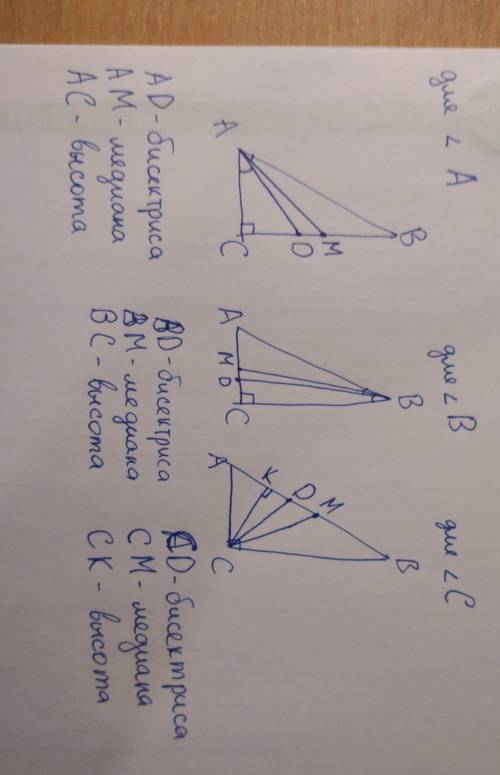 для < A
A
B
C
D
M
AD - бисектриса
AM - медиана
AC - высота
для < B
A
B
M
D
C
BD - бисектриса
BM - медиана
BC - высота
для < C
A
K
D
M
B
C
CD - бисектриса
CM - медиана
CK - высота